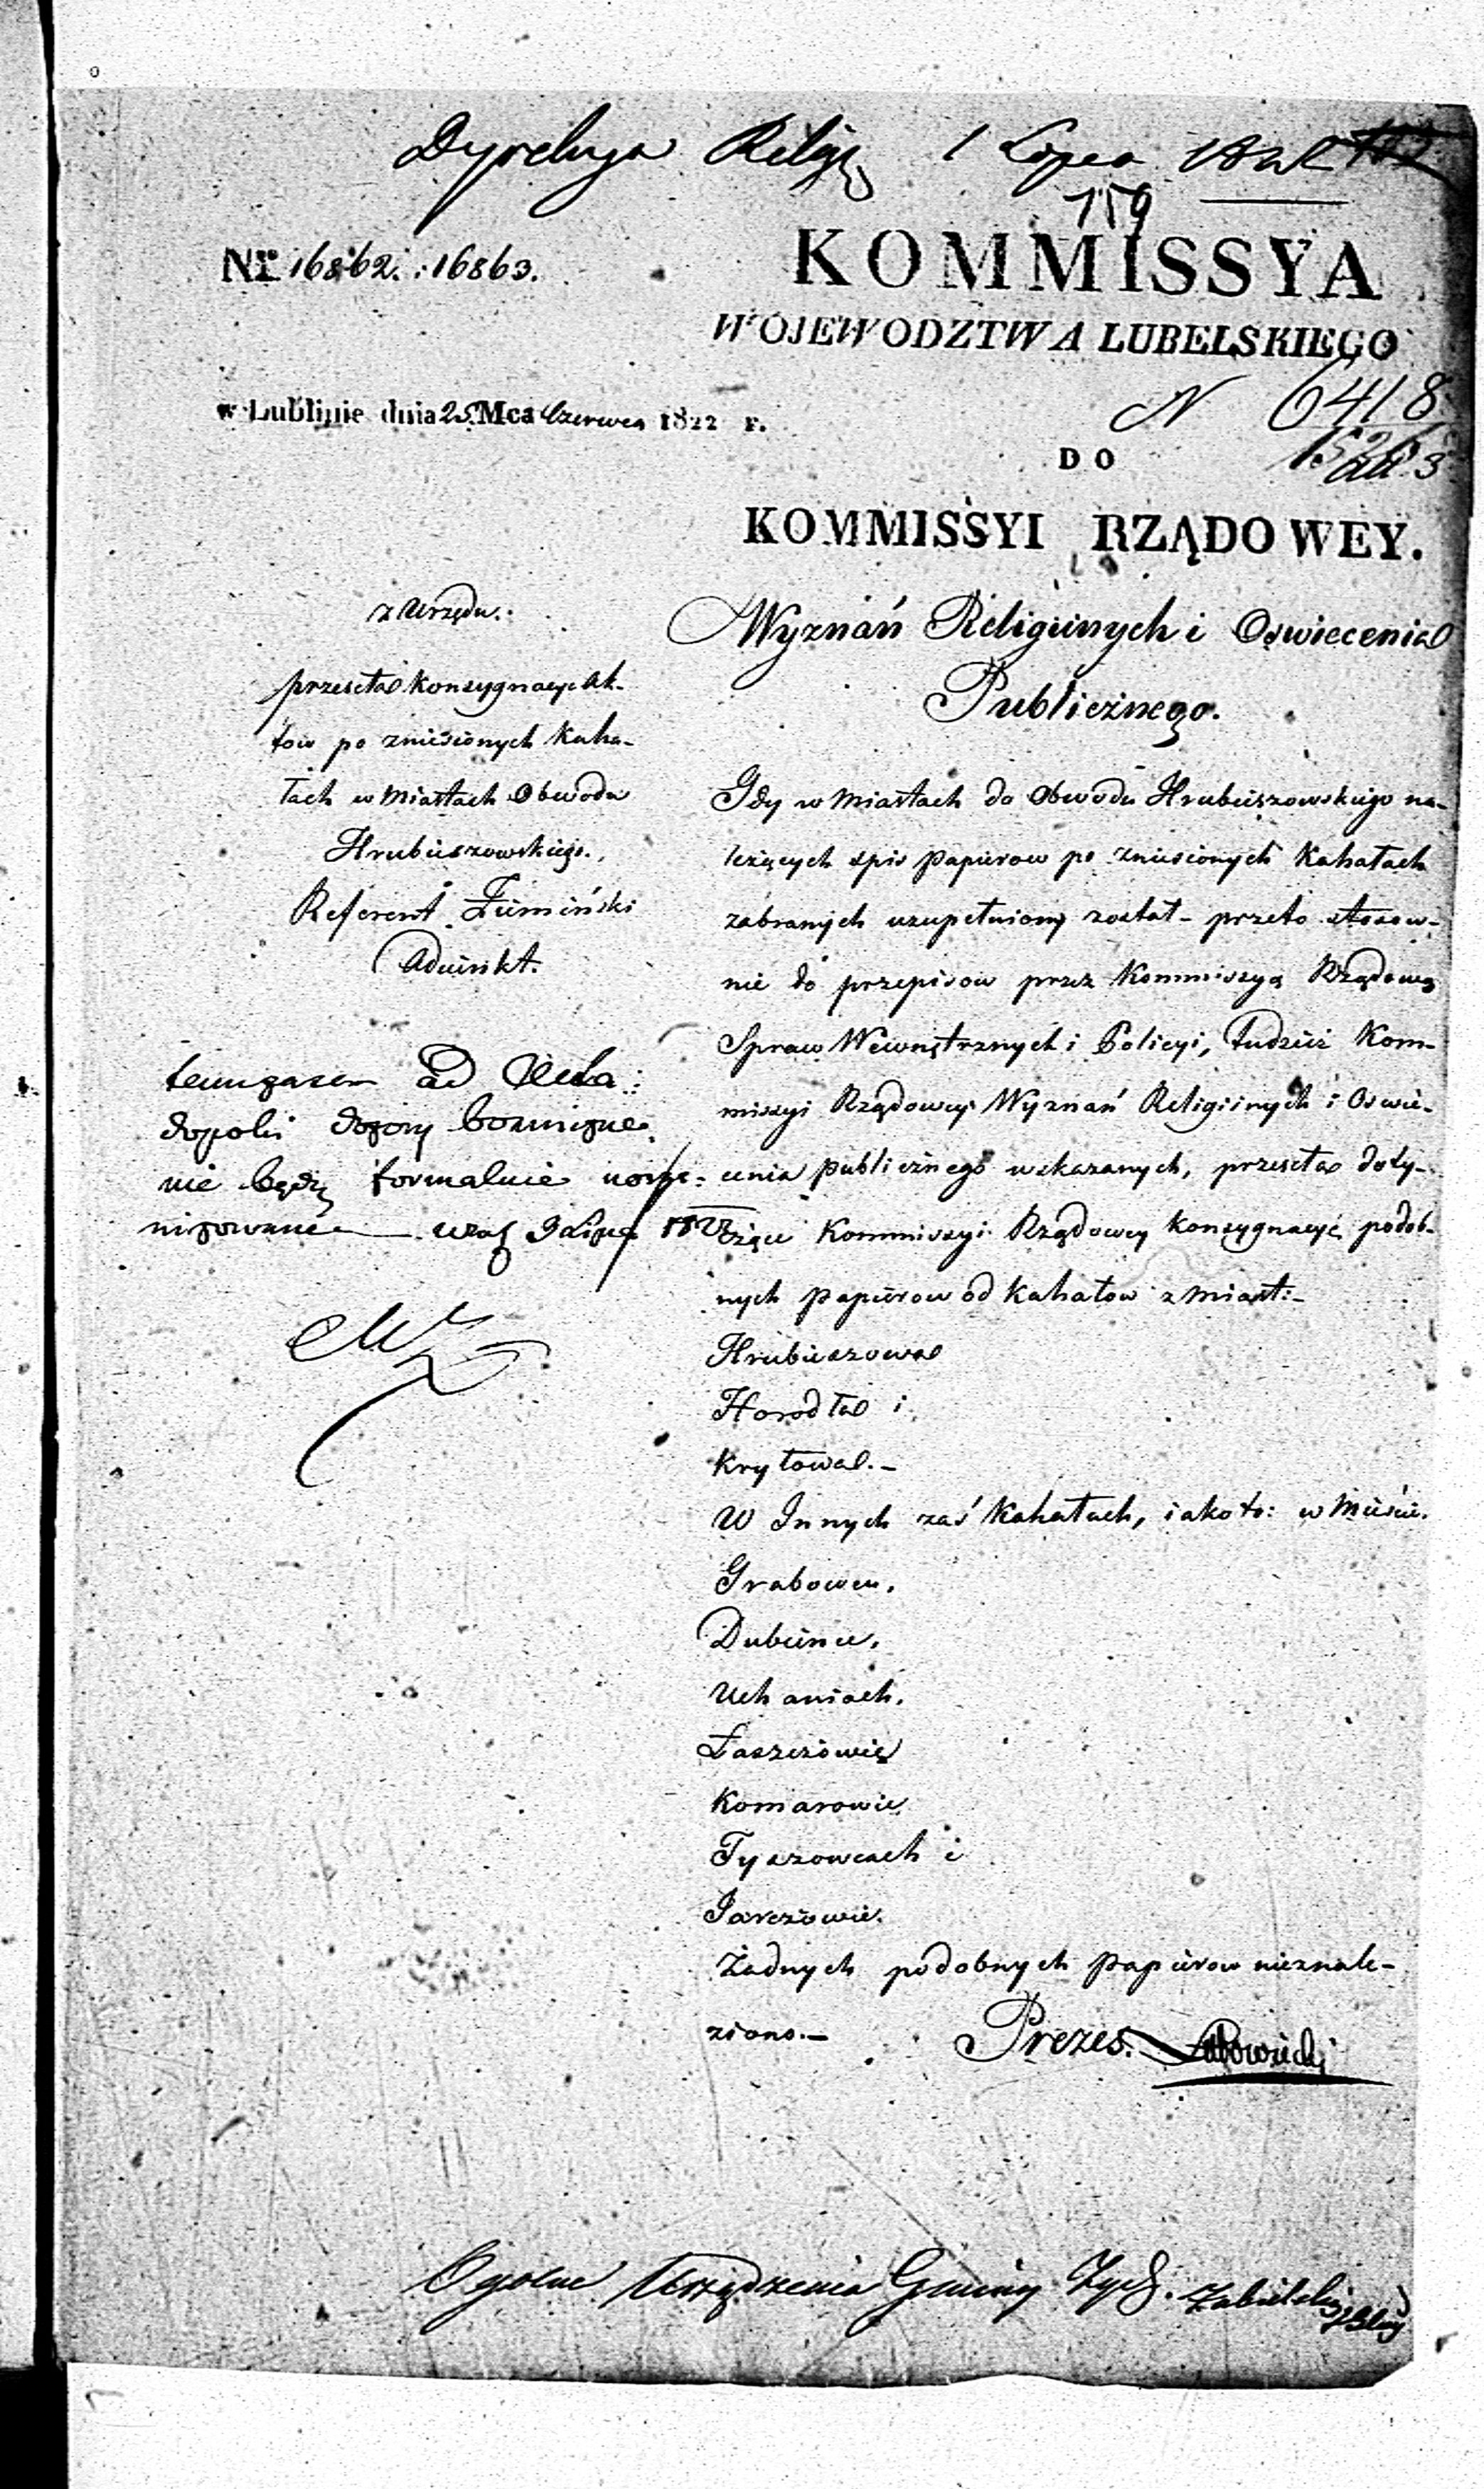 Dyrekcya Religij 1 Lipca 1822
159
Nr 16862. : 16863.
KOMMISSYA
WOJEWODZTWA LUBELSKIEGO
w Lublinie dnia 25 Mca Czerwca 1822 r.
N 6418
DO
KOMMISSYI RZĄDOWEY.
Wyznań Religiinych i Oswiecenia
Publicznego.
z Urzędu.
przesyła konsygnacye Ak-
tow po zniesionych Kaha-
łach w Miastach Obwodu
Hrubieszowskiego.
Referent Ziemiński
Adiunkt.
tymczasem ad acta
dopoki dozory boznicze
nie będą formalnie
nizowane 9 Lipca 1822
Gdy w Miastach do Obwodu Hrubieszowskiego na-
leżących spis papierow po zniesionych Kahałach
zabranych uzupełniony został – przeto stosow-
nie do przepisow przez Kommissyą Rządową
Spraw Wewnętrznych i Policyi, tudzież Kom-
missyi Rządowey Wyznań Religiinych i Oswie-
cenia publicznego wskazanych, przesyła doty-
żące Kommissyi Rządowey Konsygnacye podob-
nych papierow od Kahałow z Miast:–
Hrubieszowa
Horodła i
Kryłowa.–
W Innych zaś Kahałach, iako to: w Mieście
Grabowcu,
Dubience,
Uchaniach,
Łaszczowie
Komarowie
Tyszowcach i
Jarczowie.
Żadnych podobnych papierow nieznale-
ziono.–
Prezes.
Ogolne Urządzenia Gminy Żyd.